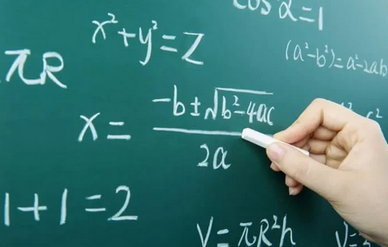 cos α = 1
x² + y² = z
(a² - b²) = a² - 2ab
πR
x = -b ± √b² - 4ac
2a
1 + 1 = 2
V = πR²h
V =